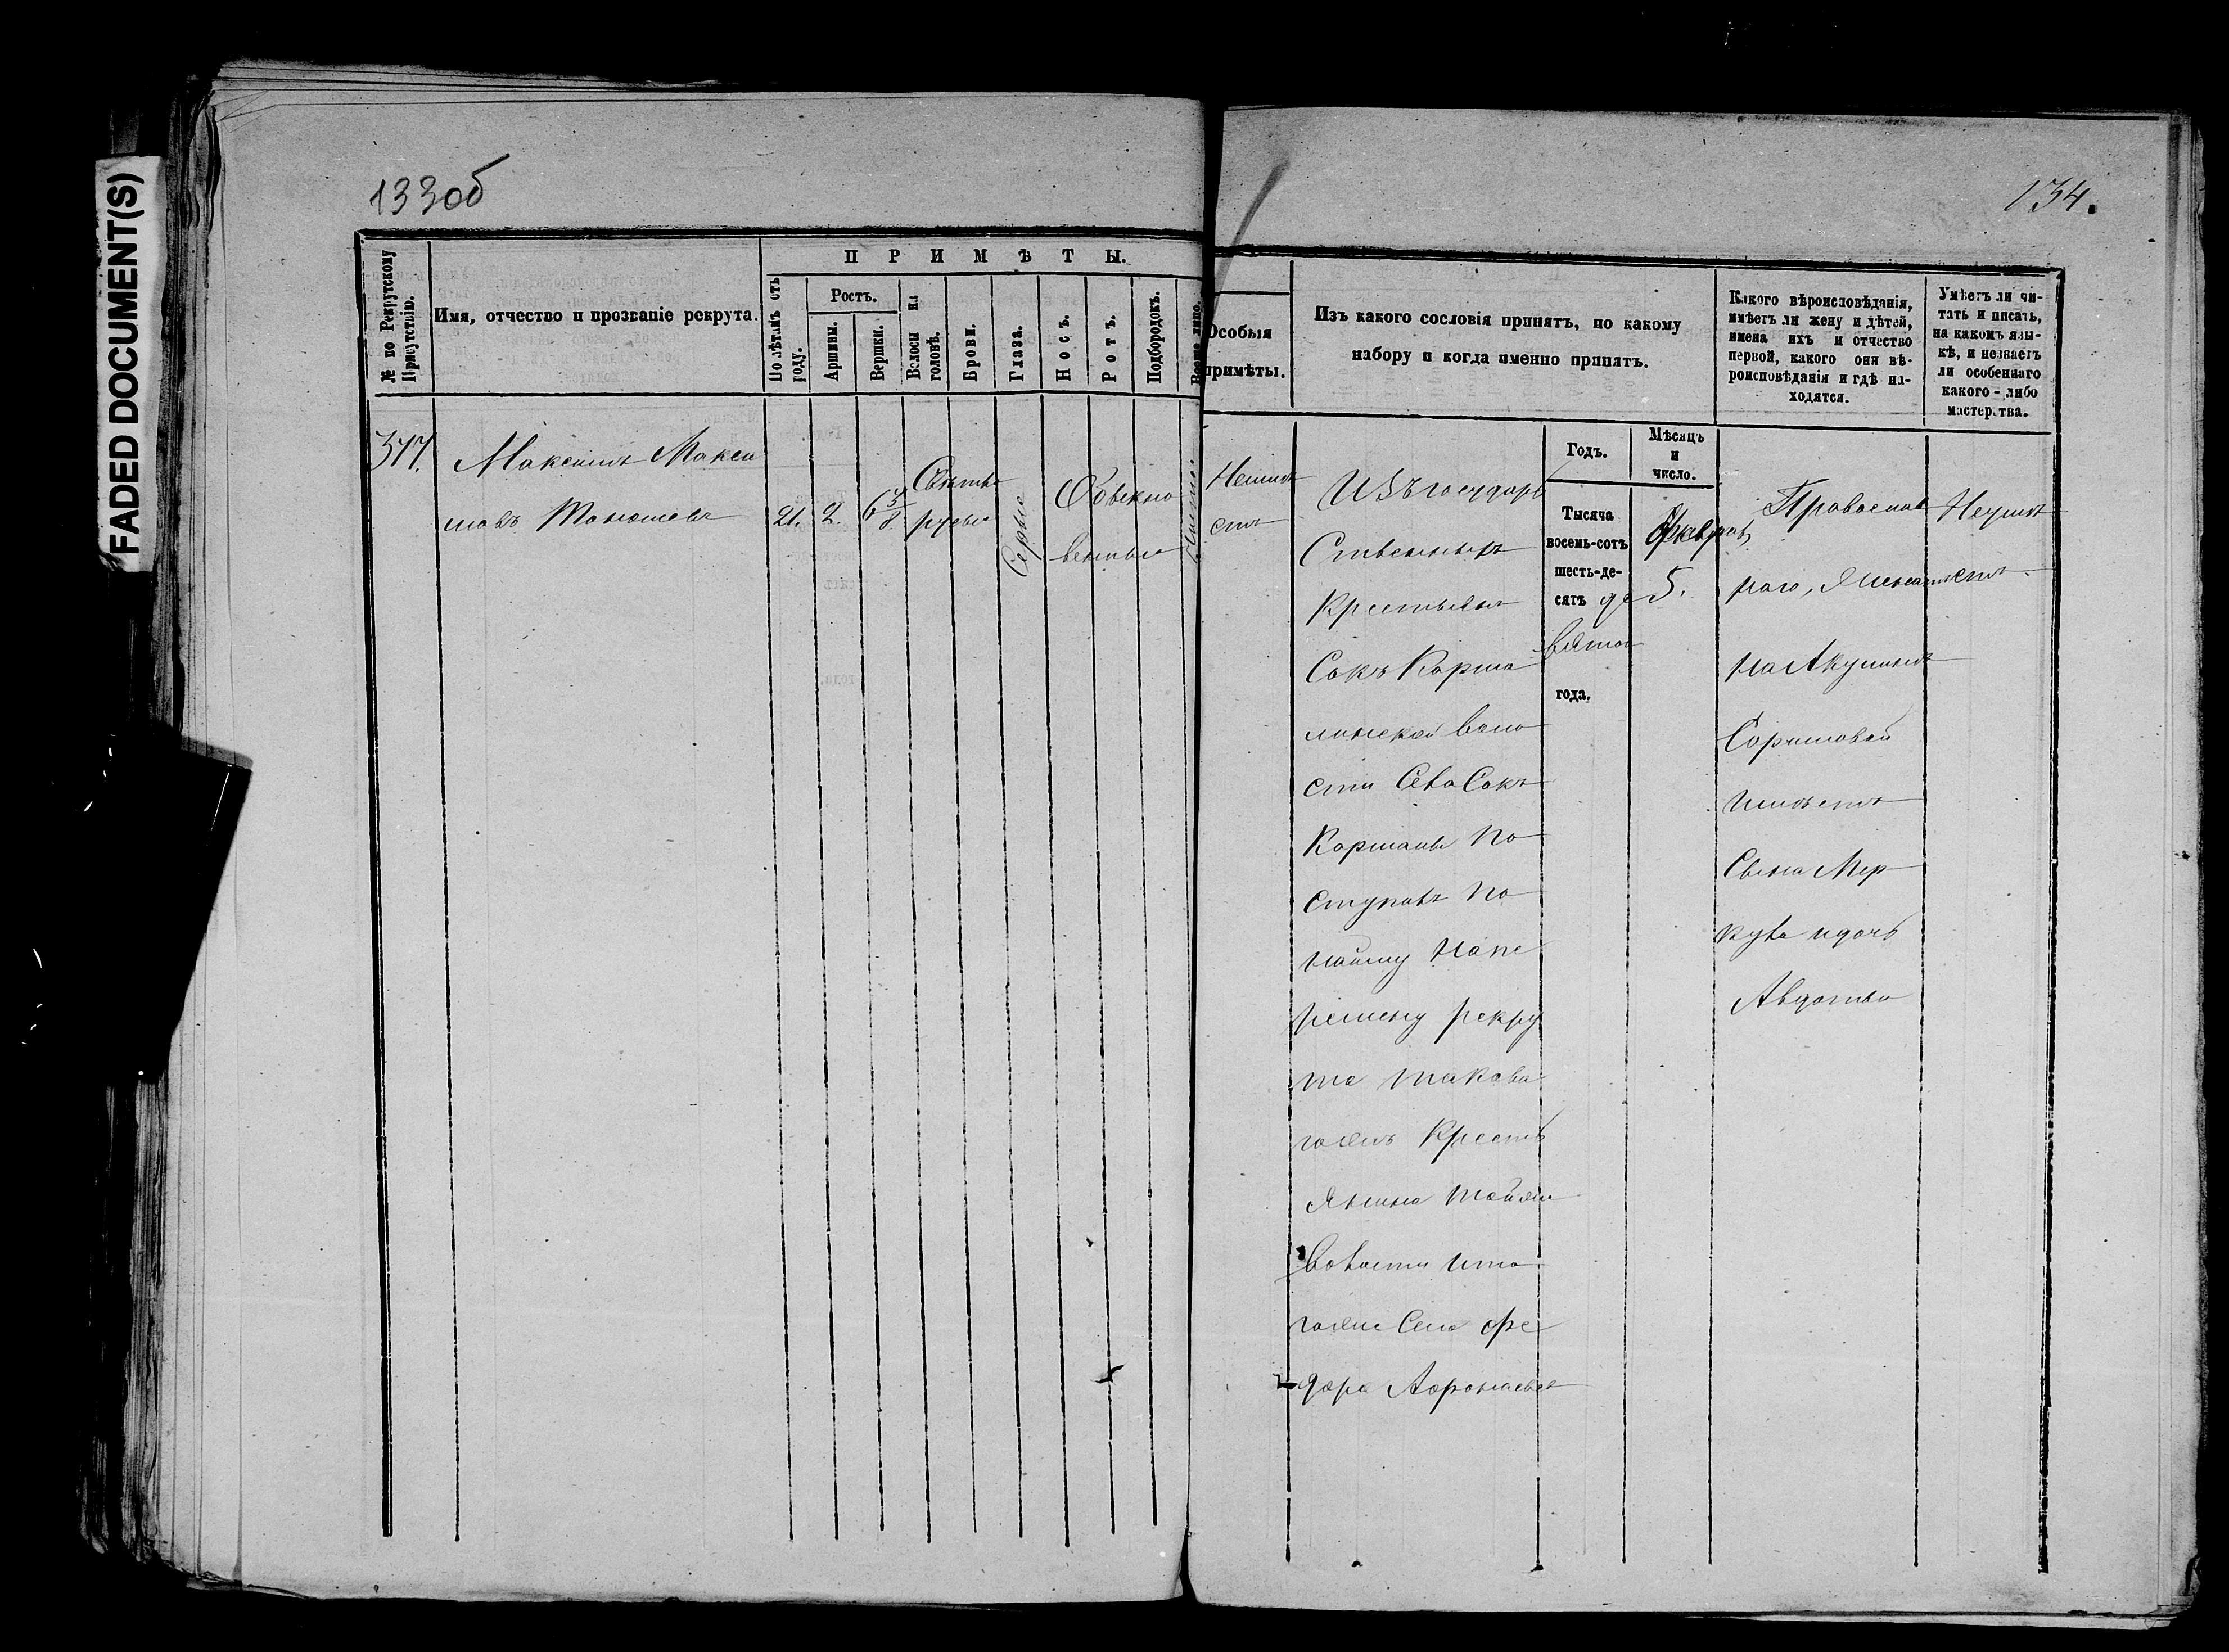 FADED DOCUMENT(S)
133об
134.
№ по Рекрутскому Присутствію.
Имя, отчество и прозваніе рекрута.
ПРИМѢТЫ.
По лѣтамъ отъ роду.
Ростъ.
Аршины.
Вершки.
Волосы на головѣ.
Брови.
Глаза.
Носъ.
Ротъ.
Подбородокъ.
лицо.
Особыя
примѣты.
Изъ какого сословія принятъ, по какому
набору и когда именно принятъ.
Какого вѣроисповѣданія,
имѣетъ ли жену и дѣтей,
имена ихъ и отчество
первой, какого они вѣ-
роисповѣданія и гдѣ на-
ходятся.
Умѣетъ ли чи-
тать и писать,
на какомъ язы-
кѣ, и незнаетъ
ли особеннаго
какого-либо
мастерства.
377.
Максимъ Макси
мовъ
21.
2.
6
Свѣтло
русые
Сѣрые
Обыкно
венные
Чистое
Неимѣ
етъ
Изъ государ
ственныхъ
крестьянъ
Сокъ Карма
линской воло
сти села Сокъ
Кармалы по
ступилъ по
найму на пе
ремену рекру
та такова
гожъ кресть
янина тойже
волости и то
гоже села Фе
дора
Годъ.
Тысяча
восемь-сотъ
шесть-де-
сятъ де
вятаго
года.
Мѣсяцъ
и
число.
Февраля
5.
Православ
наго, женатъ
на Акулине
имѣетъ
сына Мер
кула и дочь
Авдотью
Неумѣ
етъ